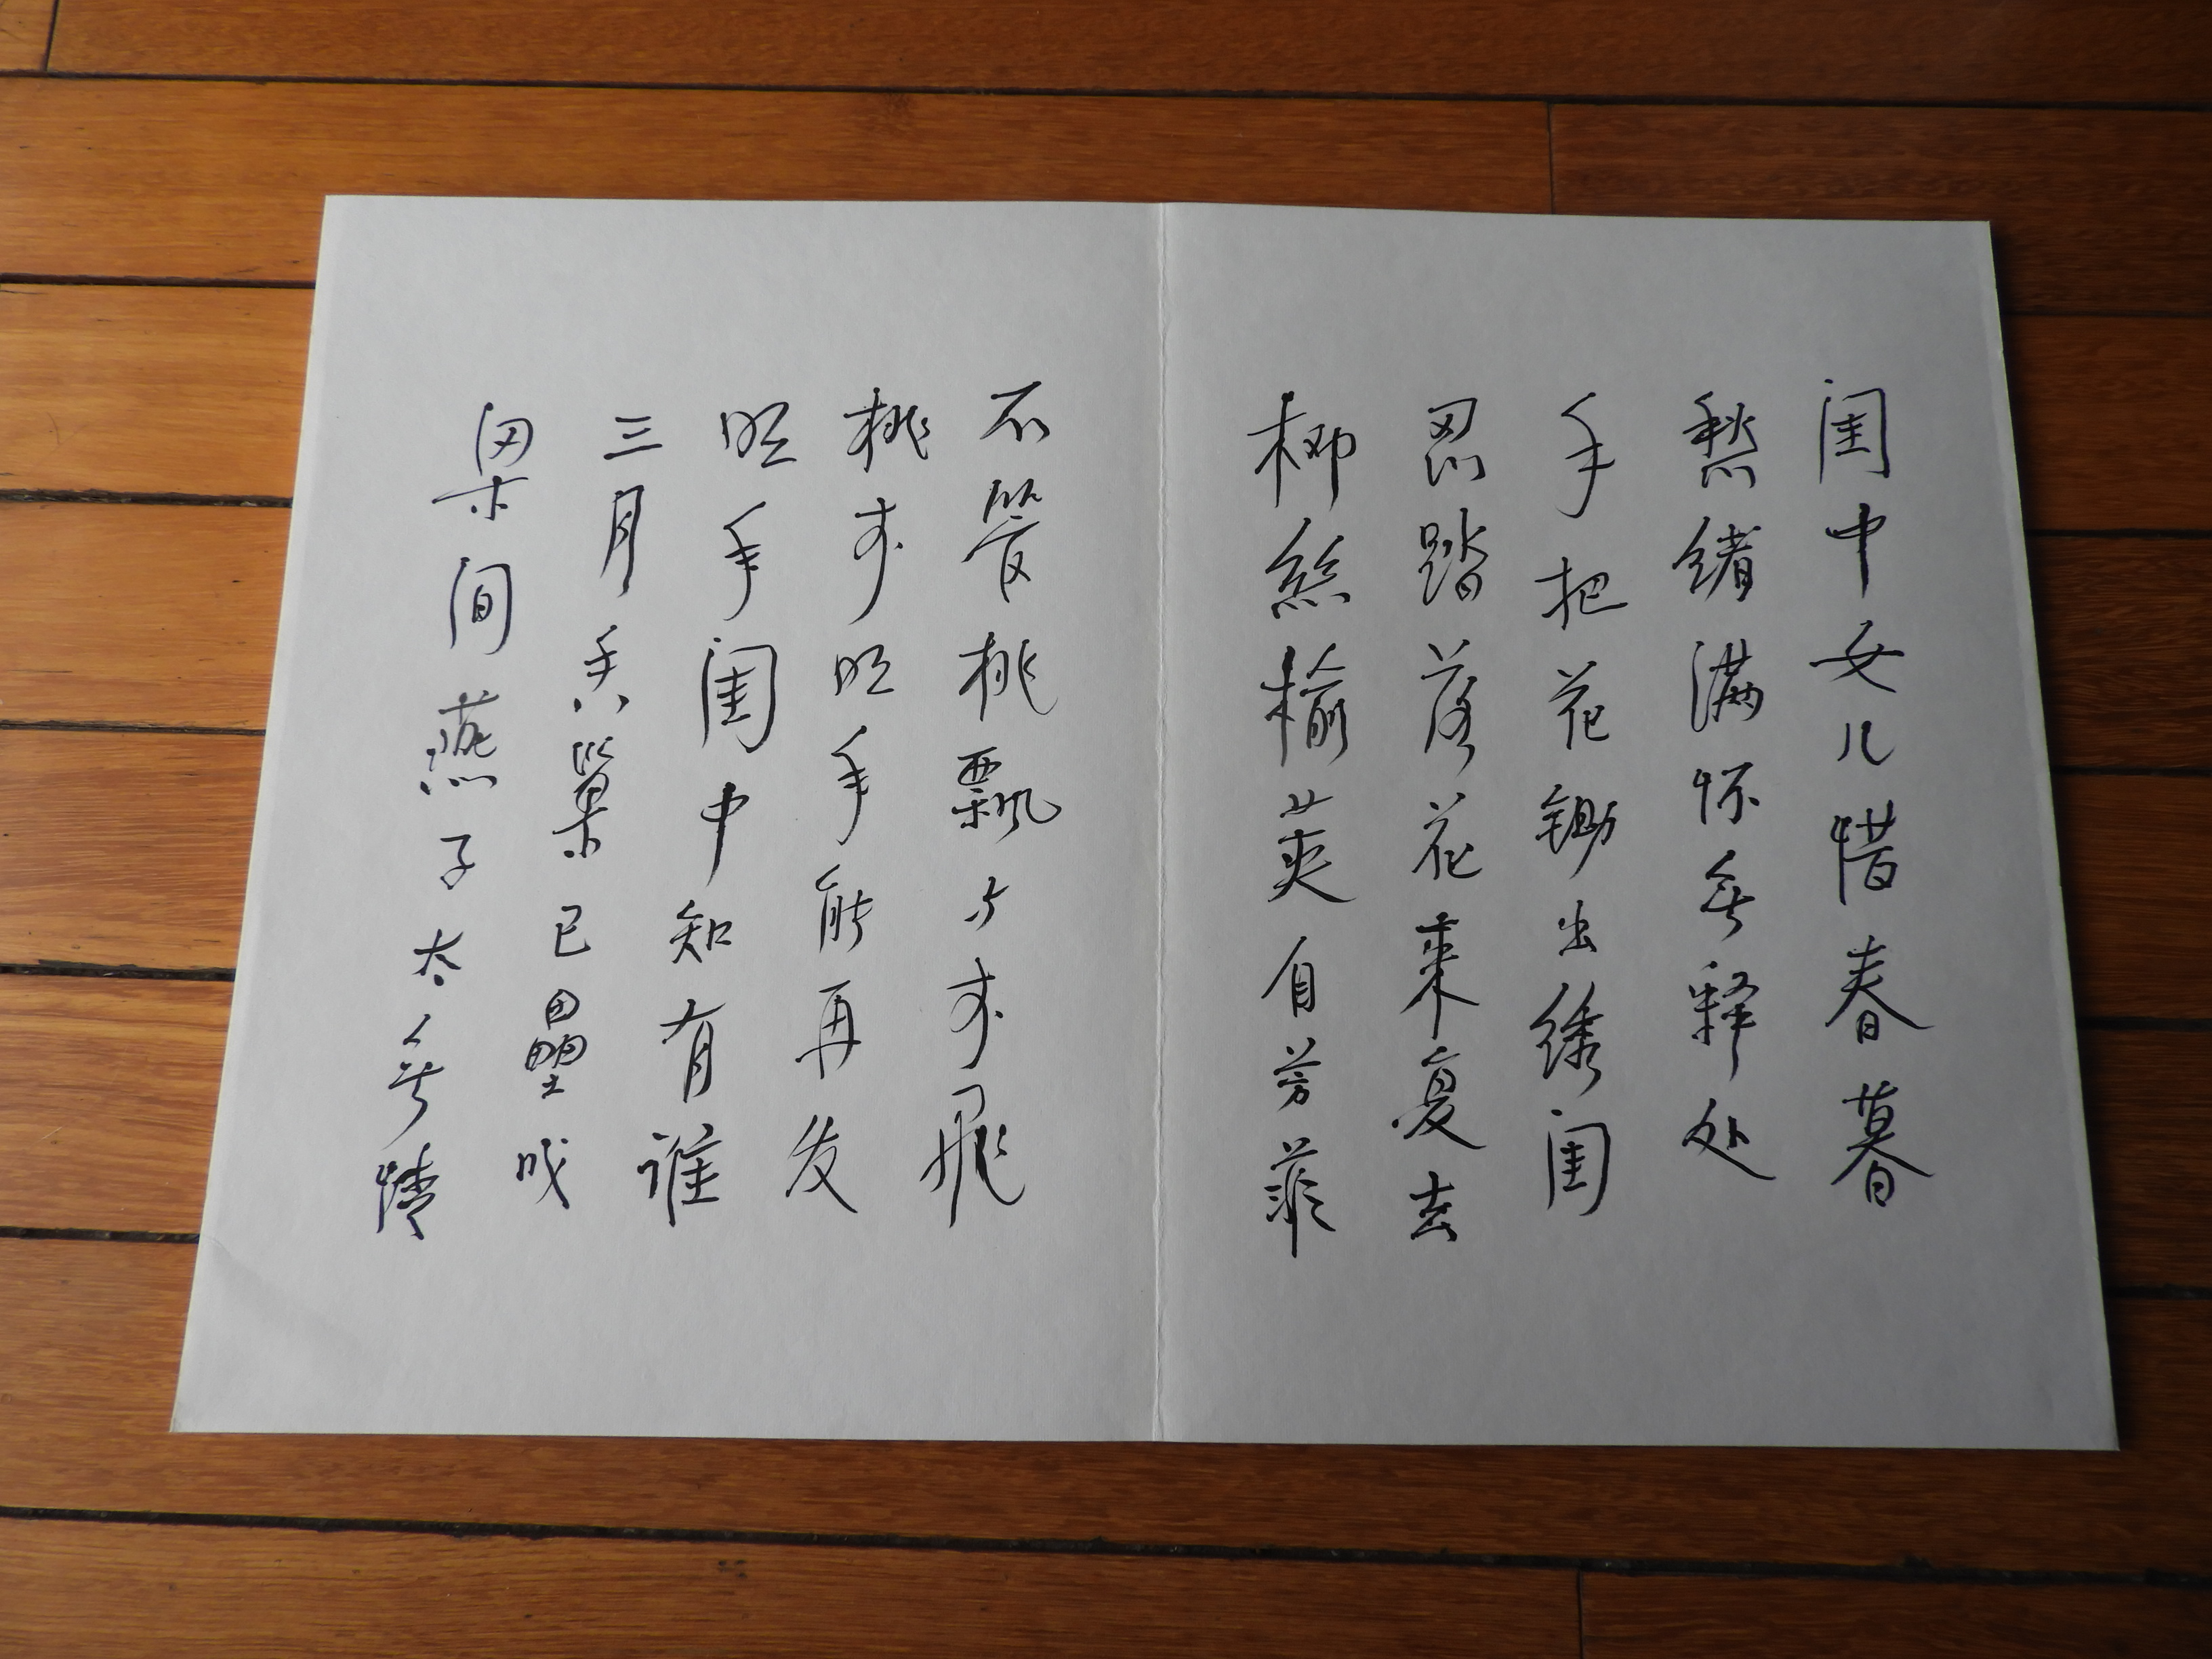 闺中女儿惜春暮
愁绪满怀无释处
手把花锄出绣闺
忍踏落花来复去
柳丝榆荚自芳菲
不管桃飘与李飞
桃李明年能再发
明年闺中知有谁
三月香巢已垒成
梁间燕子太无情